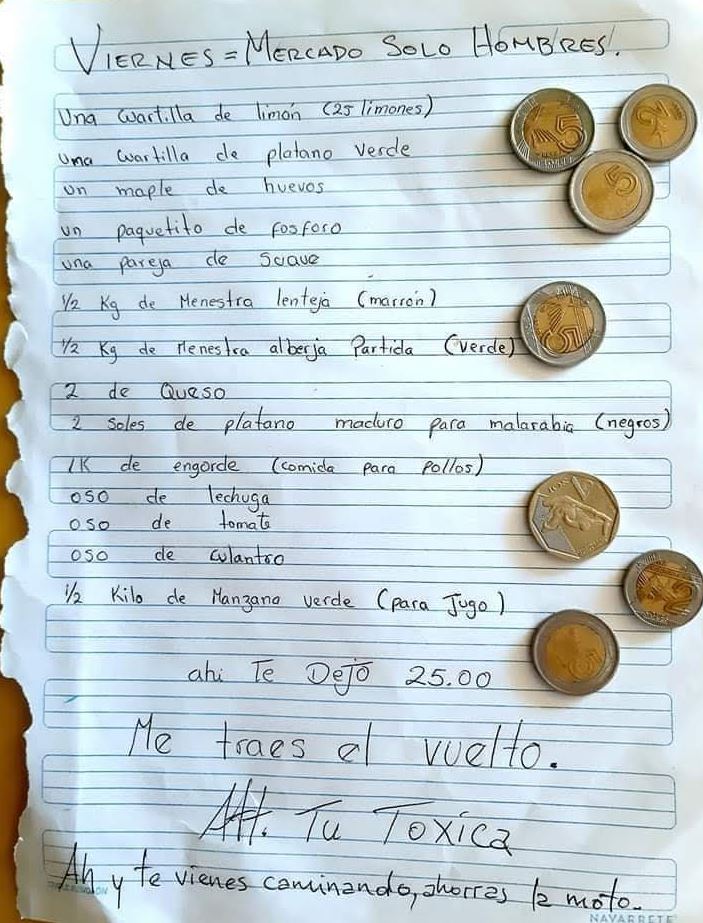 VIERNES = MERCADO SOLO HOMBRES.
una cuartilla de limón (25 limones)
una cuartilla de platano verde
un maple de huevos
un paquetito de fosforo
una pareja de suave
1/2 Kg de Menestra lenteja (marrón)
1/2 Kg de Menestra alberja Partida (verde)
2 de Queso
2 soles de platano maduro para malarabia (negros)
1K de engorde (comida para pollos)
0S0 de lechuga
0S0 de tomate
0S0 de culantro
1/2 Kilo de Manzana verde (para Jugo)
ahi Te DeJO 25.00
Me traes el vuelto.
Att. Tu Toxica
Ah y te vienes caminando, ahorras la moto.
NAVARRETE